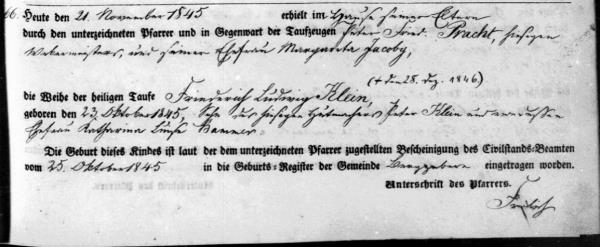 66. Heute den 21. November 1845 erhielt im Hause seiner Eltern
durch den unterzeichneten Pfarrer und in Gegenwart der Taufzeugen Peter Fried. Pracht, hiesigen
Webermeisters, und seiner Ehefrau Margaretha Jacoby,
(+ den 28. Dez. 1846)
die Weihe der heiligen Taufe Friederich Ludwig Klein,
geboren den 23. Oktober 1845, Sohn des hiesigen Peter Klein und dessen
Ehefrau Katharina Louise
Die Geburt dieses Kindes ist laut der dem unterzeichneten Pfarrer zugestellten Bescheinigung des Civilstands-Beamten
vom 25. Oktober 1845 in die Geburts-Register der Gemeinde eingetragen worden.
Unterschrift des Pfarrers.